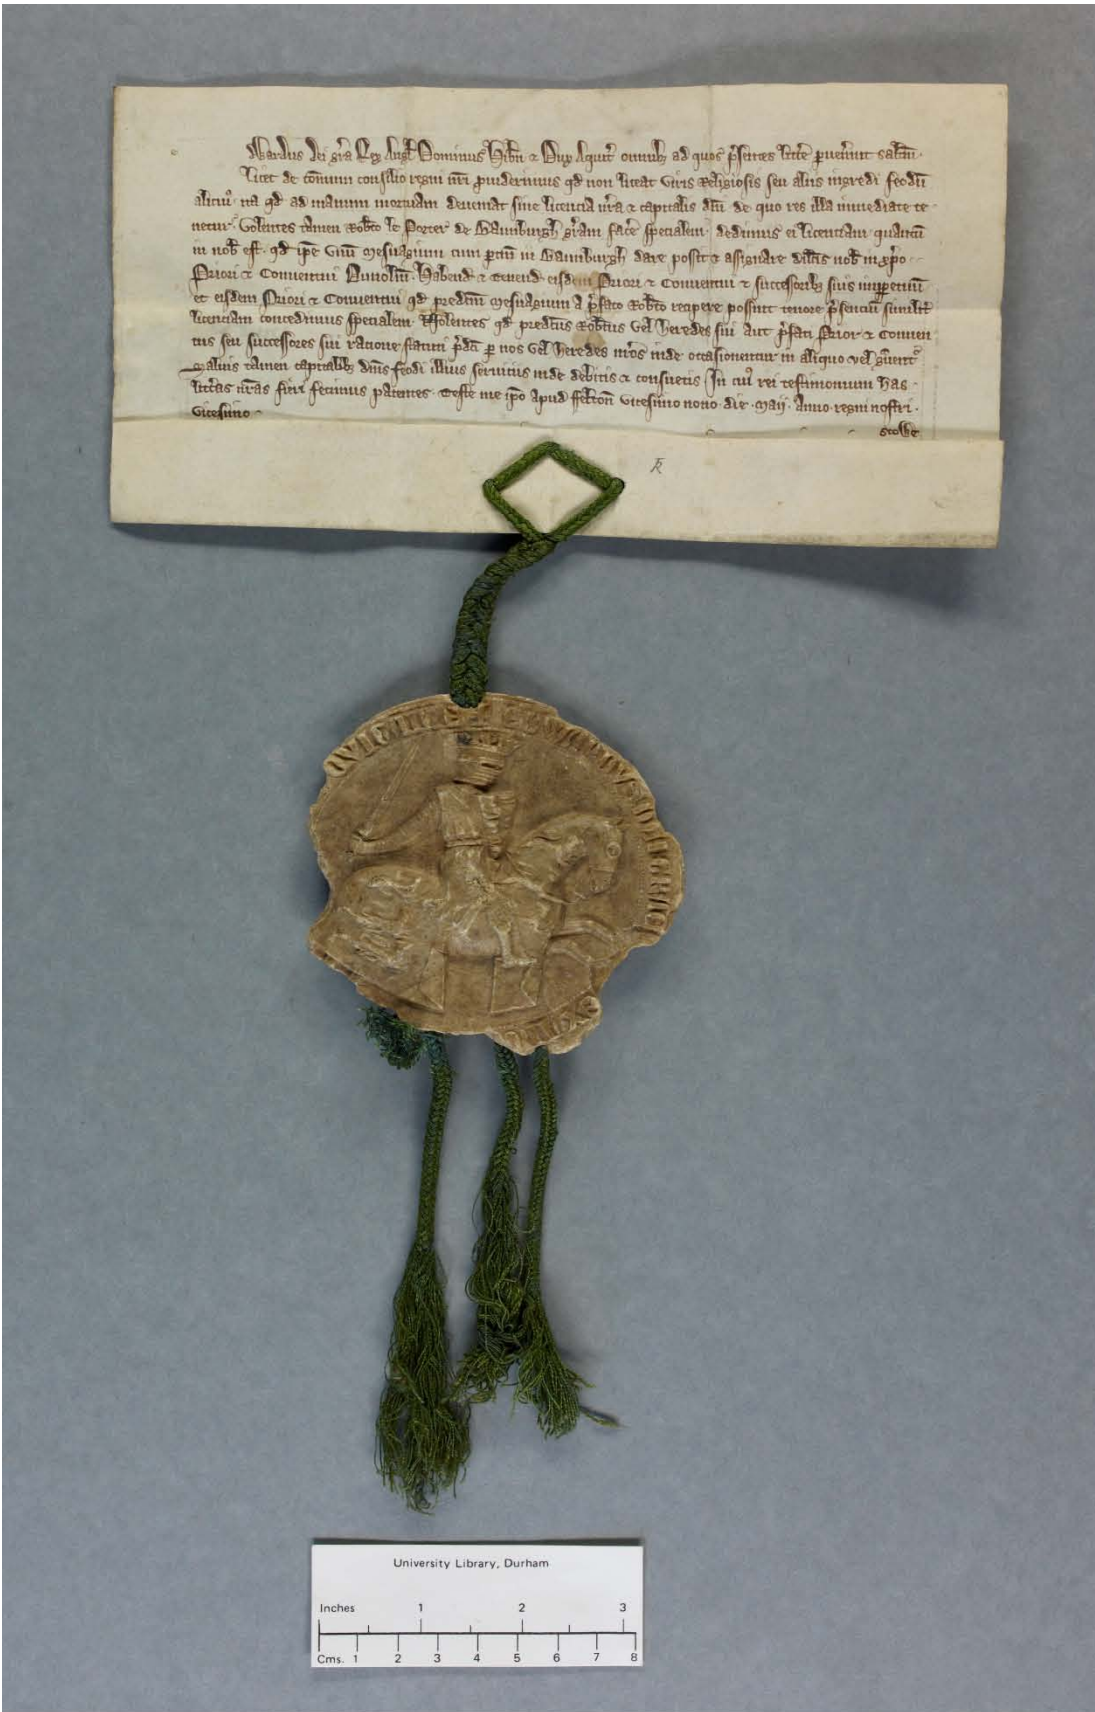 dwardus dei gr̄a Rex Angl̄ Dominus Hib̄n ⁊ Dux Aquit̄ omnib₃ ad quos p̄sentes litt̄e puen̄int salt̄m.
Licet de cōmuni consilio regni nr̄i prouiderimus qd̄ non liceat viris Religiosis seu aliis ingredi feodū
alicuiꝰ. ita qd̄ ad manum mortuam deueniat sine licencia nr̄a ⁊ capitalis dn̄i de quo res illa inmediate te
netur. Volentes tamen Rob̄to le Porter de Baumburgh gr̄am fac̄e specialem. dedimus ei licentiam quantū
in nob̄ est. qd̄ ip̄e vnū Mesuagium cum ptin̄ in Baumburgh dare possit ⁊ assignare dil̄tis nob̄ in xp̄o
Priori ⁊ Conuentui Dunolm̄. Habend̄ ⁊ tenend̄ eisdem Priori ⁊ Conuentui ⁊ successorib₃ suis imppetuū
et eisdem Priori ⁊ Conuentui qd̄ predc̄m Mesuagium a p̄fato Rob̄to recipere possint tenore p̄senciū similit̄
licenciam concedimus specialem. Nolentes qd̄ predc̄us Rob̄tus vel heredes sui aut p̄fati Prior ⁊ Conuen
tus seu successores sui ratione statuti p̄dc̄i p nos vel heredes nr̄os inde occasionentur in aliquo vel g̈uentꝰ
Saluis tamen capitalib₃ dn̄is feodi illius seruiciis inde debitis ⁊ consuetis. In cuiꝰ rei testimonium has
litt̄as nr̄as fieri fecimus patentes. Teste me ip̄o apud vicesimo nono die Maij. Anno regni nostri.
vicesimo.
Stowe
EDWARDVS
University Library, Durham
Inches 1 2 3
Cms. 1 2 3 4 5 6 7 8